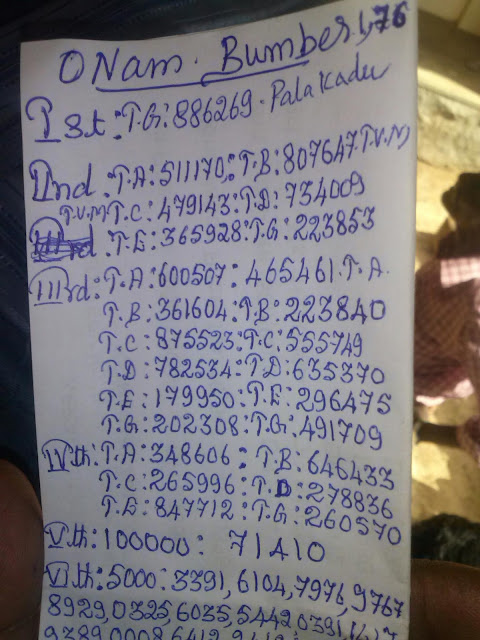 ONam. Bumber. 1,76
Ist: T.G: 886269. Palakadu
IInd: T.A: 511170,: T.B: 807647. T.V.M
T.V.M T.C: 479143: T.D: 734009
T.E: 365928: T.G: 223853
IIIrd: T.A: 600507: 465461. T.A.
T.B: 361604: T.B: 223840
T.C: 875523: T.C: 555749
T.D: 782534: T.D: 635370
T.E: 179950: T.E: 296475
T.G: 202308: T.G: 491709
IVth: T.A: 348606: T.B: 646433
T.C: 265996: T.D: 278836
T.E: 847712: T.G: 260570
Vth: 100000: 71410
VIth: 5000: 3391, 6104, 7976, 9767
8929, 0325, 6035, 5442, 0391,
9389, 0008, 6412,